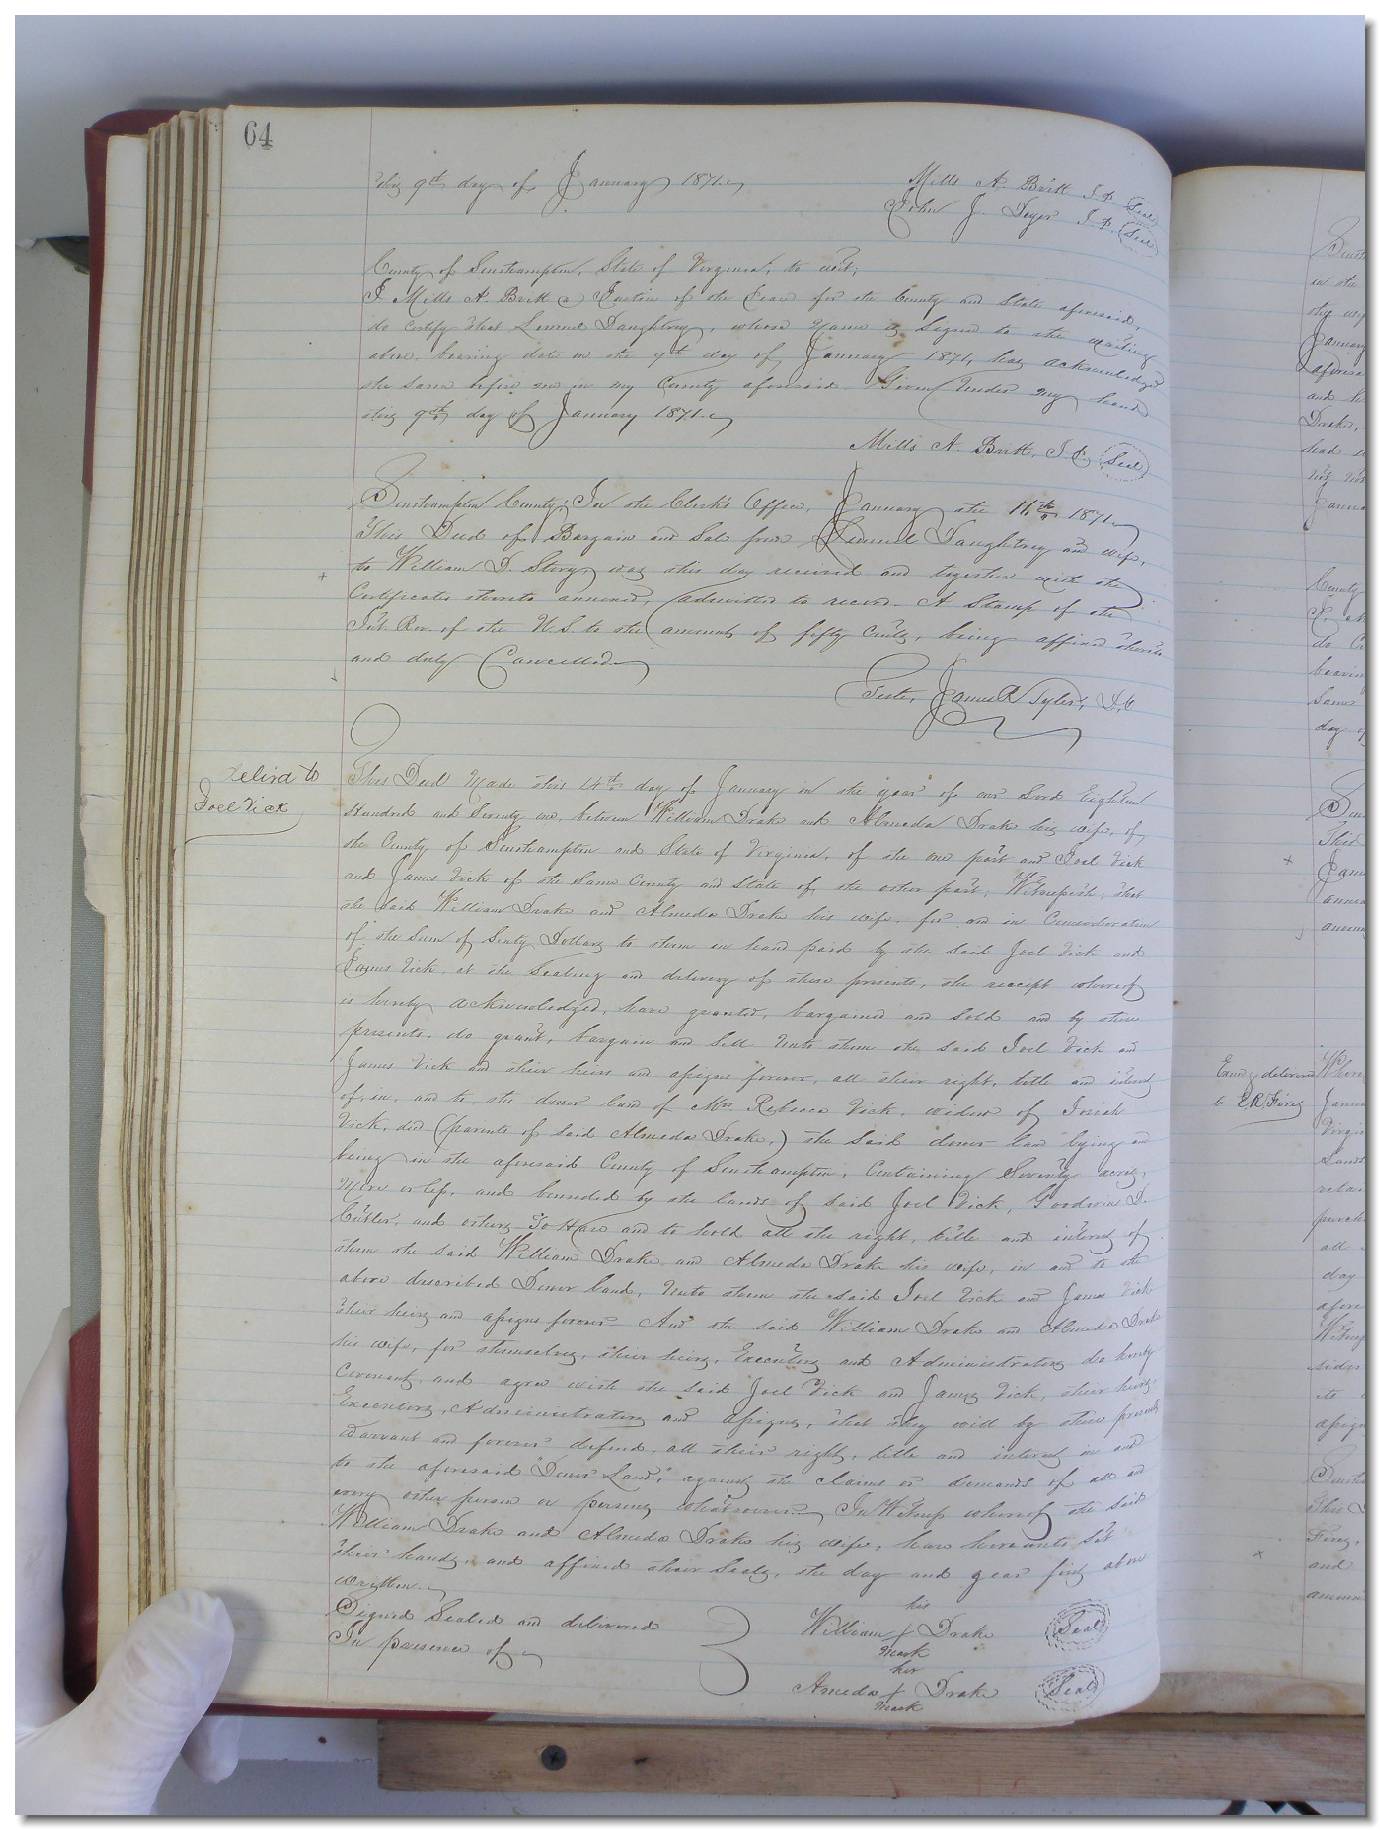 64
this 9th day of January 1871.
Mills A. Britt J.P. Seal
John J. Dyer J.P. Seal
County of Southampton, State of Virginia, to wit;
I Mills A. Britt a Justice of the Peace for the County and State aforesaid,
do certify that Lemuel Daughtrey, whose name is signed to the writing
above, bearing date on the 9th day of January 1871, has acknowledged
the same before me in my County aforesaid. Given under my hand
this 9th day of January 1871.
Mills A. Britt, J.P. Seal
Southampton County; In the Clerk's Office, January the 16th 1871.
This Deed of Bargain and Sale from Lemuel Daughtrey and wife,
to William D. Story, was this day received and together with the
Certificates thereto annexed, admitted to record. A Stamp of the
Int. Rev. of the U.S. to the amount of fifty Cents, being affixed thereto
and duly Cancelled
Teste, James R Tyler, D.C
Delivd to
Joel Vick
This Deed Made this 14th day of January in the year of our Lord Eighteen
Hundred and Seventy one, between William Drake and Almeda Drake his wife, of
the County of Southampton and State of Virginia, of the one part and Joel Vick
and James Vick of the Same County and State of the other part; Witnesseth, that
the said William Drake and Almeda Drake his wife, for and in Consideration
of the Sum of Sixty Dollars to them in hand paid by the said Joel Vick and
James Vick, at the Sealing and delivery of these presents, the receipt whereof
is hereby acknowledged, have granted, bargained and Sold and by these
presents, do grant, bargain and Sell Unto them the said Joel Vick and
James Vick and their heirs and assigns forever, all their right, title and interest
of, in, and to the dower land of Mrs Rebecca Vick, widow of Josiah
Vick, decd (parents of said Almeda Drake,) the Said dower land lying and
being in the aforesaid County of Southampton, Containing Seventy acres,
More or less, and bounded by the lands of said Joel Vick, Goodwin D.
Cutler, and others To Have and to hold all the right, title and interest of
them the said William Drake and Almeda Drake his wife, in and to the
above described Dower land, Unto them the said Joel Vick and James Vick
their heirs and assigns forever And the said William Drake and Almeda Drake
his wife, for themselves, their heirs, Executors and Administrators do hereby
Covenant, and agree with the said Joel Vick and James Vick, their heirs,
Executors, Administrators and assigns, that they will by these presents
Warrant and forever defend, all their right, title and interest in and
to the aforesaid "Dower Land," against the claims or demands of all and
every other person or persons whatsoever. In Witness whereof the said
William Drake and Almeda Drake his wife, have hereunto Set
their hands, and affixed their Seals, the day and year first above
written.
Signed Sealed and delivered
In presence of
his
William + Drake Seal
mark
her
Ameda + Drake Seal
mark
Examd & delivered
to E.R.